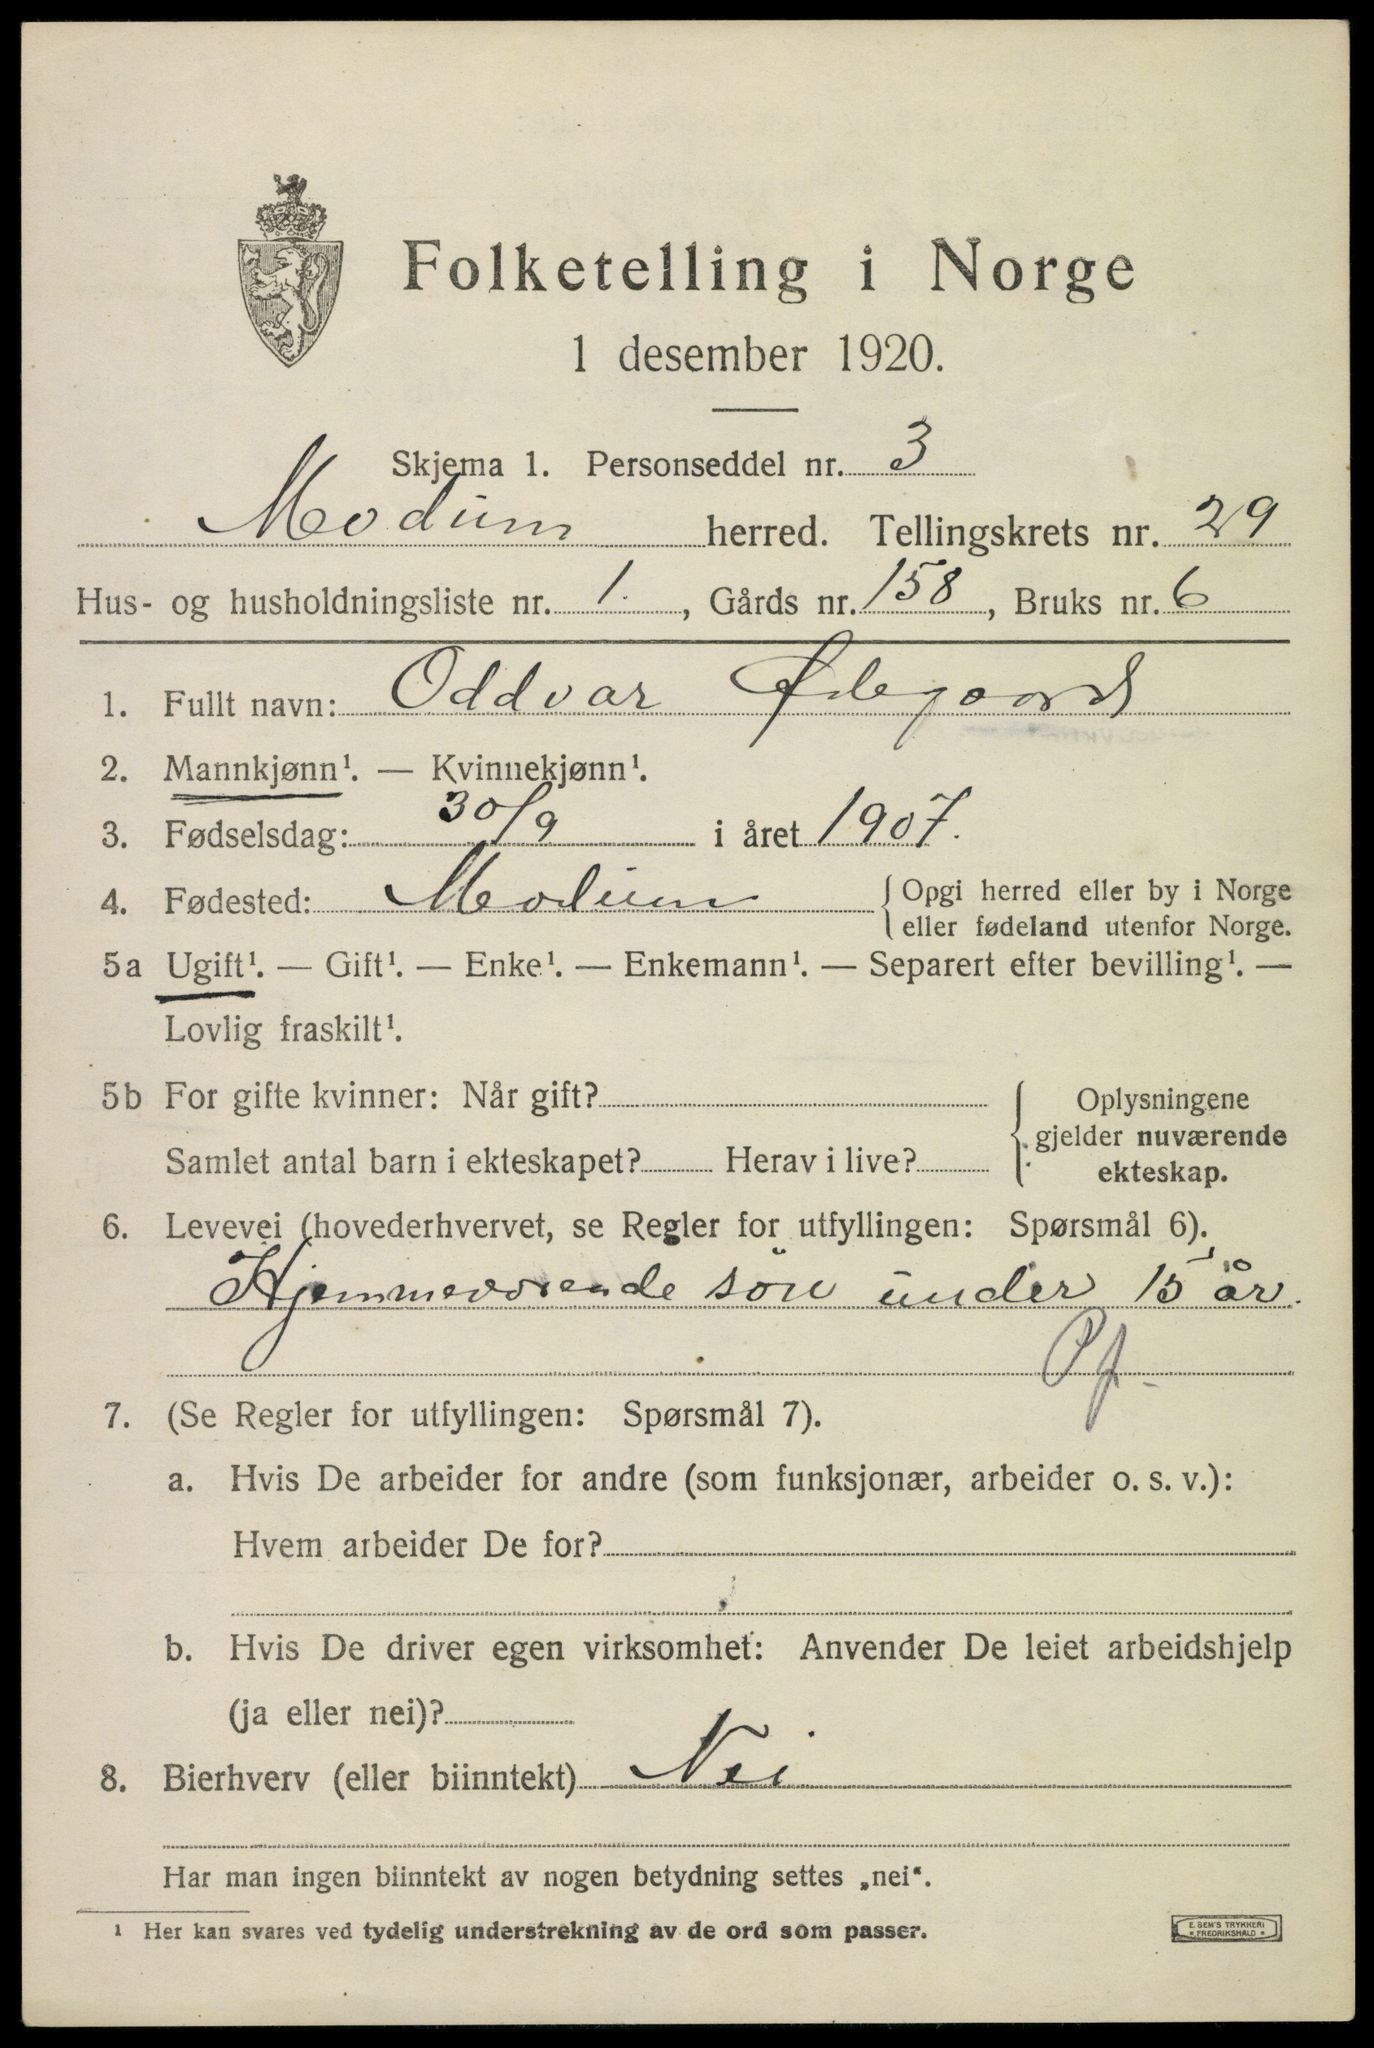 Folketelling i Norge
1 desember 1920.
Skjema 1. Personseddel nr. 3
Modum herred. Tellingskrets nr. 29
Hus- og husholdningsliste nr. 1. , Gårds nr. 158 , Bruks nr. 6
1. Fullt navn: Oddvar Ødegaard
2. Mannkjønn¹. — Kvinnekjønn¹.
3. Fødselsdag: 30/9 i året 1907.
4. Fødested: Modum { Opgi herred eller by i Norge
eller fødeland utenfor Norge.
5a Ugift¹. — Gift¹. — Enke¹. — Enkemann¹. — Separert efter bevilling¹. —
Lovlig fraskilt¹.
5b For gifte kvinner: Når gift? { Oplysningene
gjelder nuværende
Samlet antal barn i ekteskapet? Herav i live?
ekteskap.
6. Levevei (hovederhvervet, se Regler for utfyllingen: Spørsmål 6).
Hjemmeværende søn under 15 år.
Pf
7. (Se Regler for utfyllingen: Spørsmål 7).
a. Hvis De arbeider for andre (som funksjonær, arbeider o. s. v.):
Hvem arbeider De for?
b. Hvis De driver egen virksomhet: Anvender De leiet arbeidshjelp
(ja eller nei)?
8. Bierhverv (eller biinntekt) Nei
Har man ingen biinntekt av nogen betydning settes „nei“.
¹ Her kan svares ved tydelig understrekning av de ord som passer.
E. SEM'S TRYKKERI
* FREDRIKSHALD *